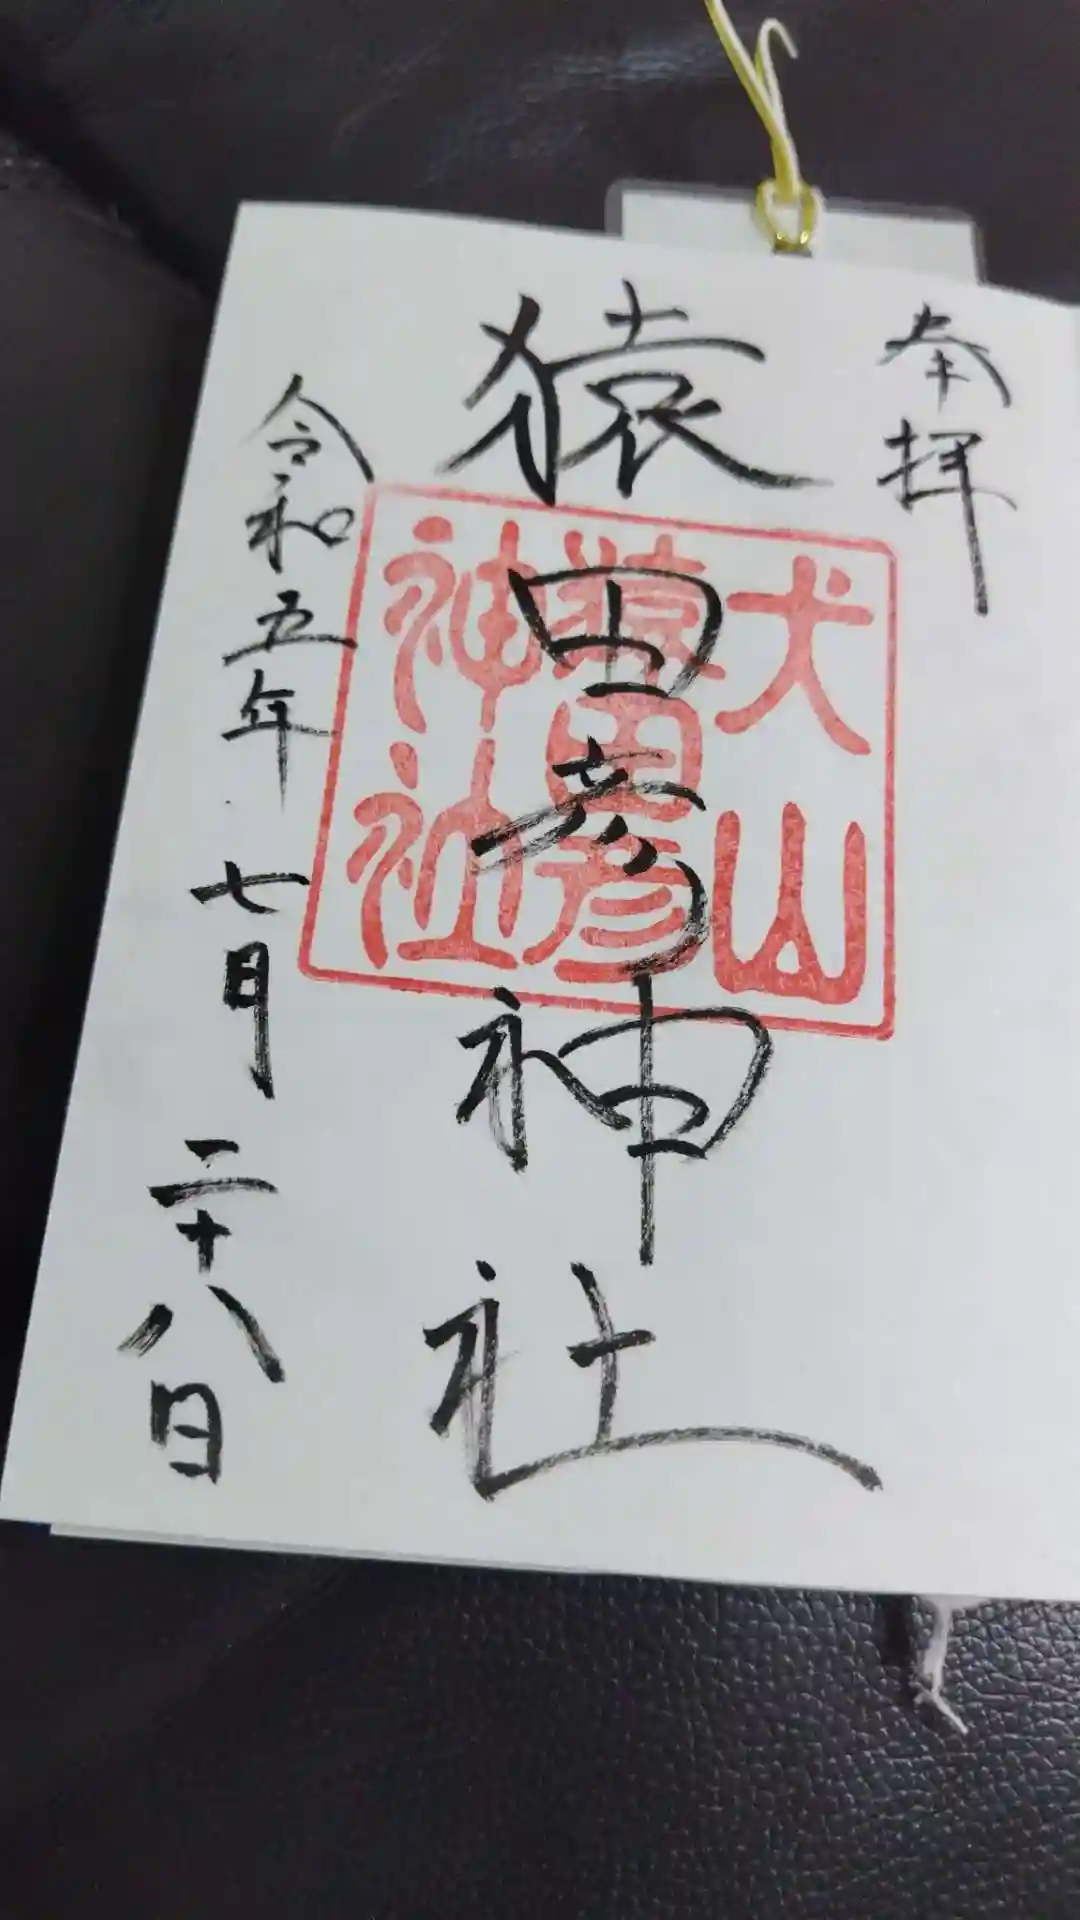 奉拝
猿田彦神社
犬山
猿田彦
神社
令和五年七月二十八日